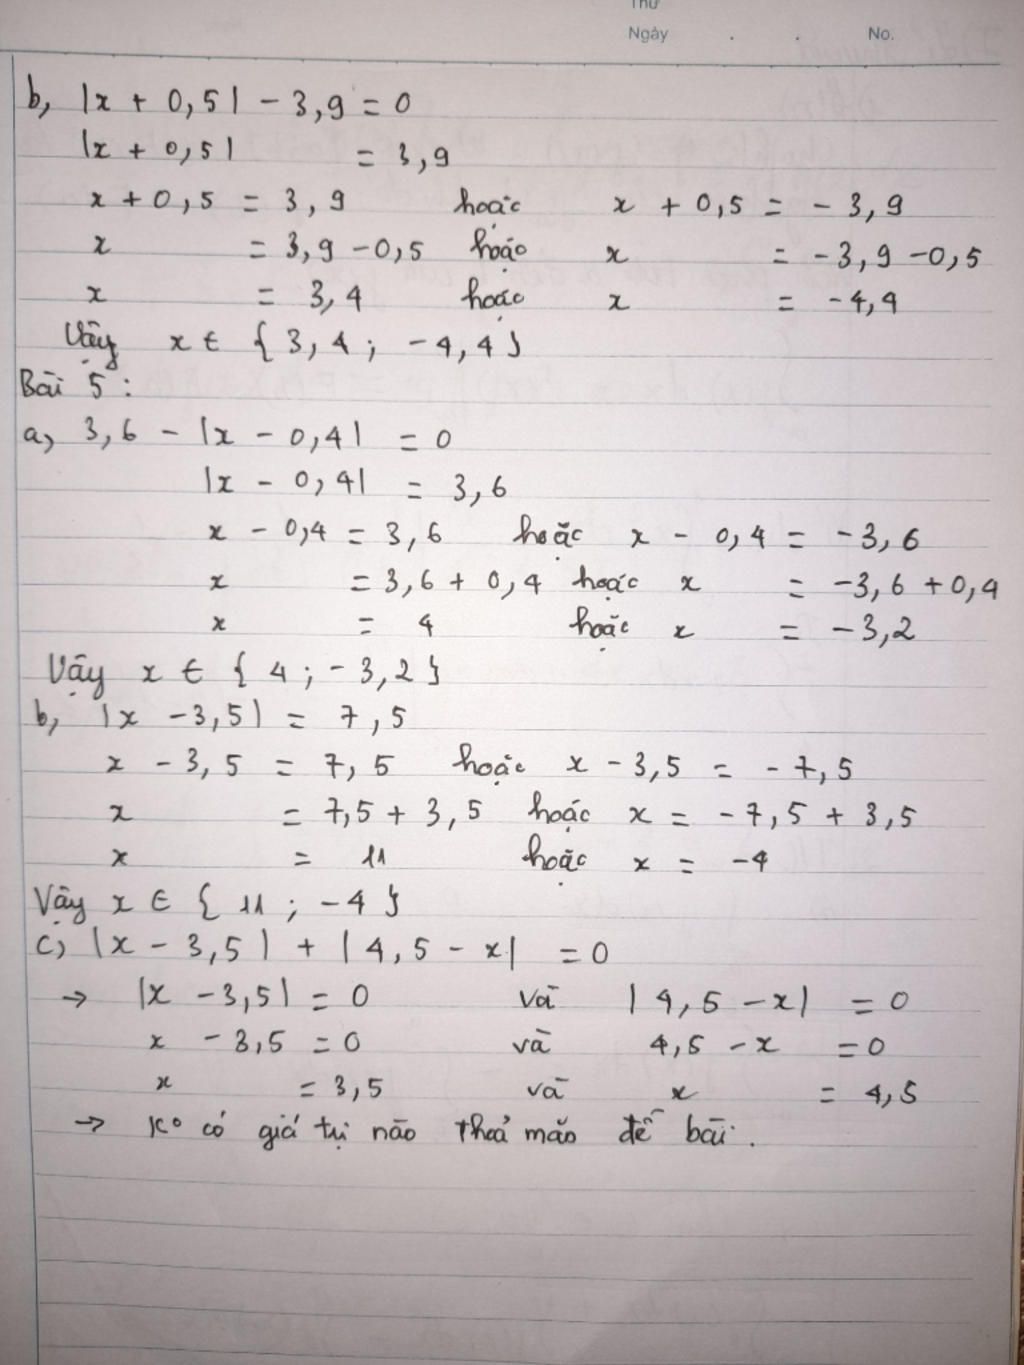 Thứ
Ngày . . No.
b, |x + 0,5| - 3,9 = 0
|x + 0,5| = 3,9
x + 0,5 = 3,9 hoặc x + 0,5 = - 3,9
x = 3,9 - 0,5 hoặc x = - 3,9 - 0,5
x = 3,4 hoặc x = - 4,4
Vậy x ∈ { 3,4 ; - 4,4 }
Bài 5 :
a, 3,6 - |x - 0,4| = 0
|x - 0,4| = 3,6
x - 0,4 = 3,6 hoặc x - 0,4 = - 3,6
x = 3,6 + 0,4 hoặc x = - 3,6 + 0,4
x = 4 hoặc x = - 3,2
Vậy x ∈ { 4 ; - 3,2 }
b, |x - 3,5| = 7,5
x - 3,5 = 7,5 hoặc x - 3,5 = - 7,5
x = 7,5 + 3,5 hoặc x = - 7,5 + 3,5
x = 11 hoặc x = - 4
Vậy x ∈ { 11 ; - 4 }
c, |x - 3,5| + |4,5 - x| = 0
→ |x - 3,5| = 0 và |4,5 - x| = 0
x - 3,5 = 0 và 4,5 - x = 0
x = 3,5 và x = 4,5
→ K° có giá trị nào thoả mãn đề bài.